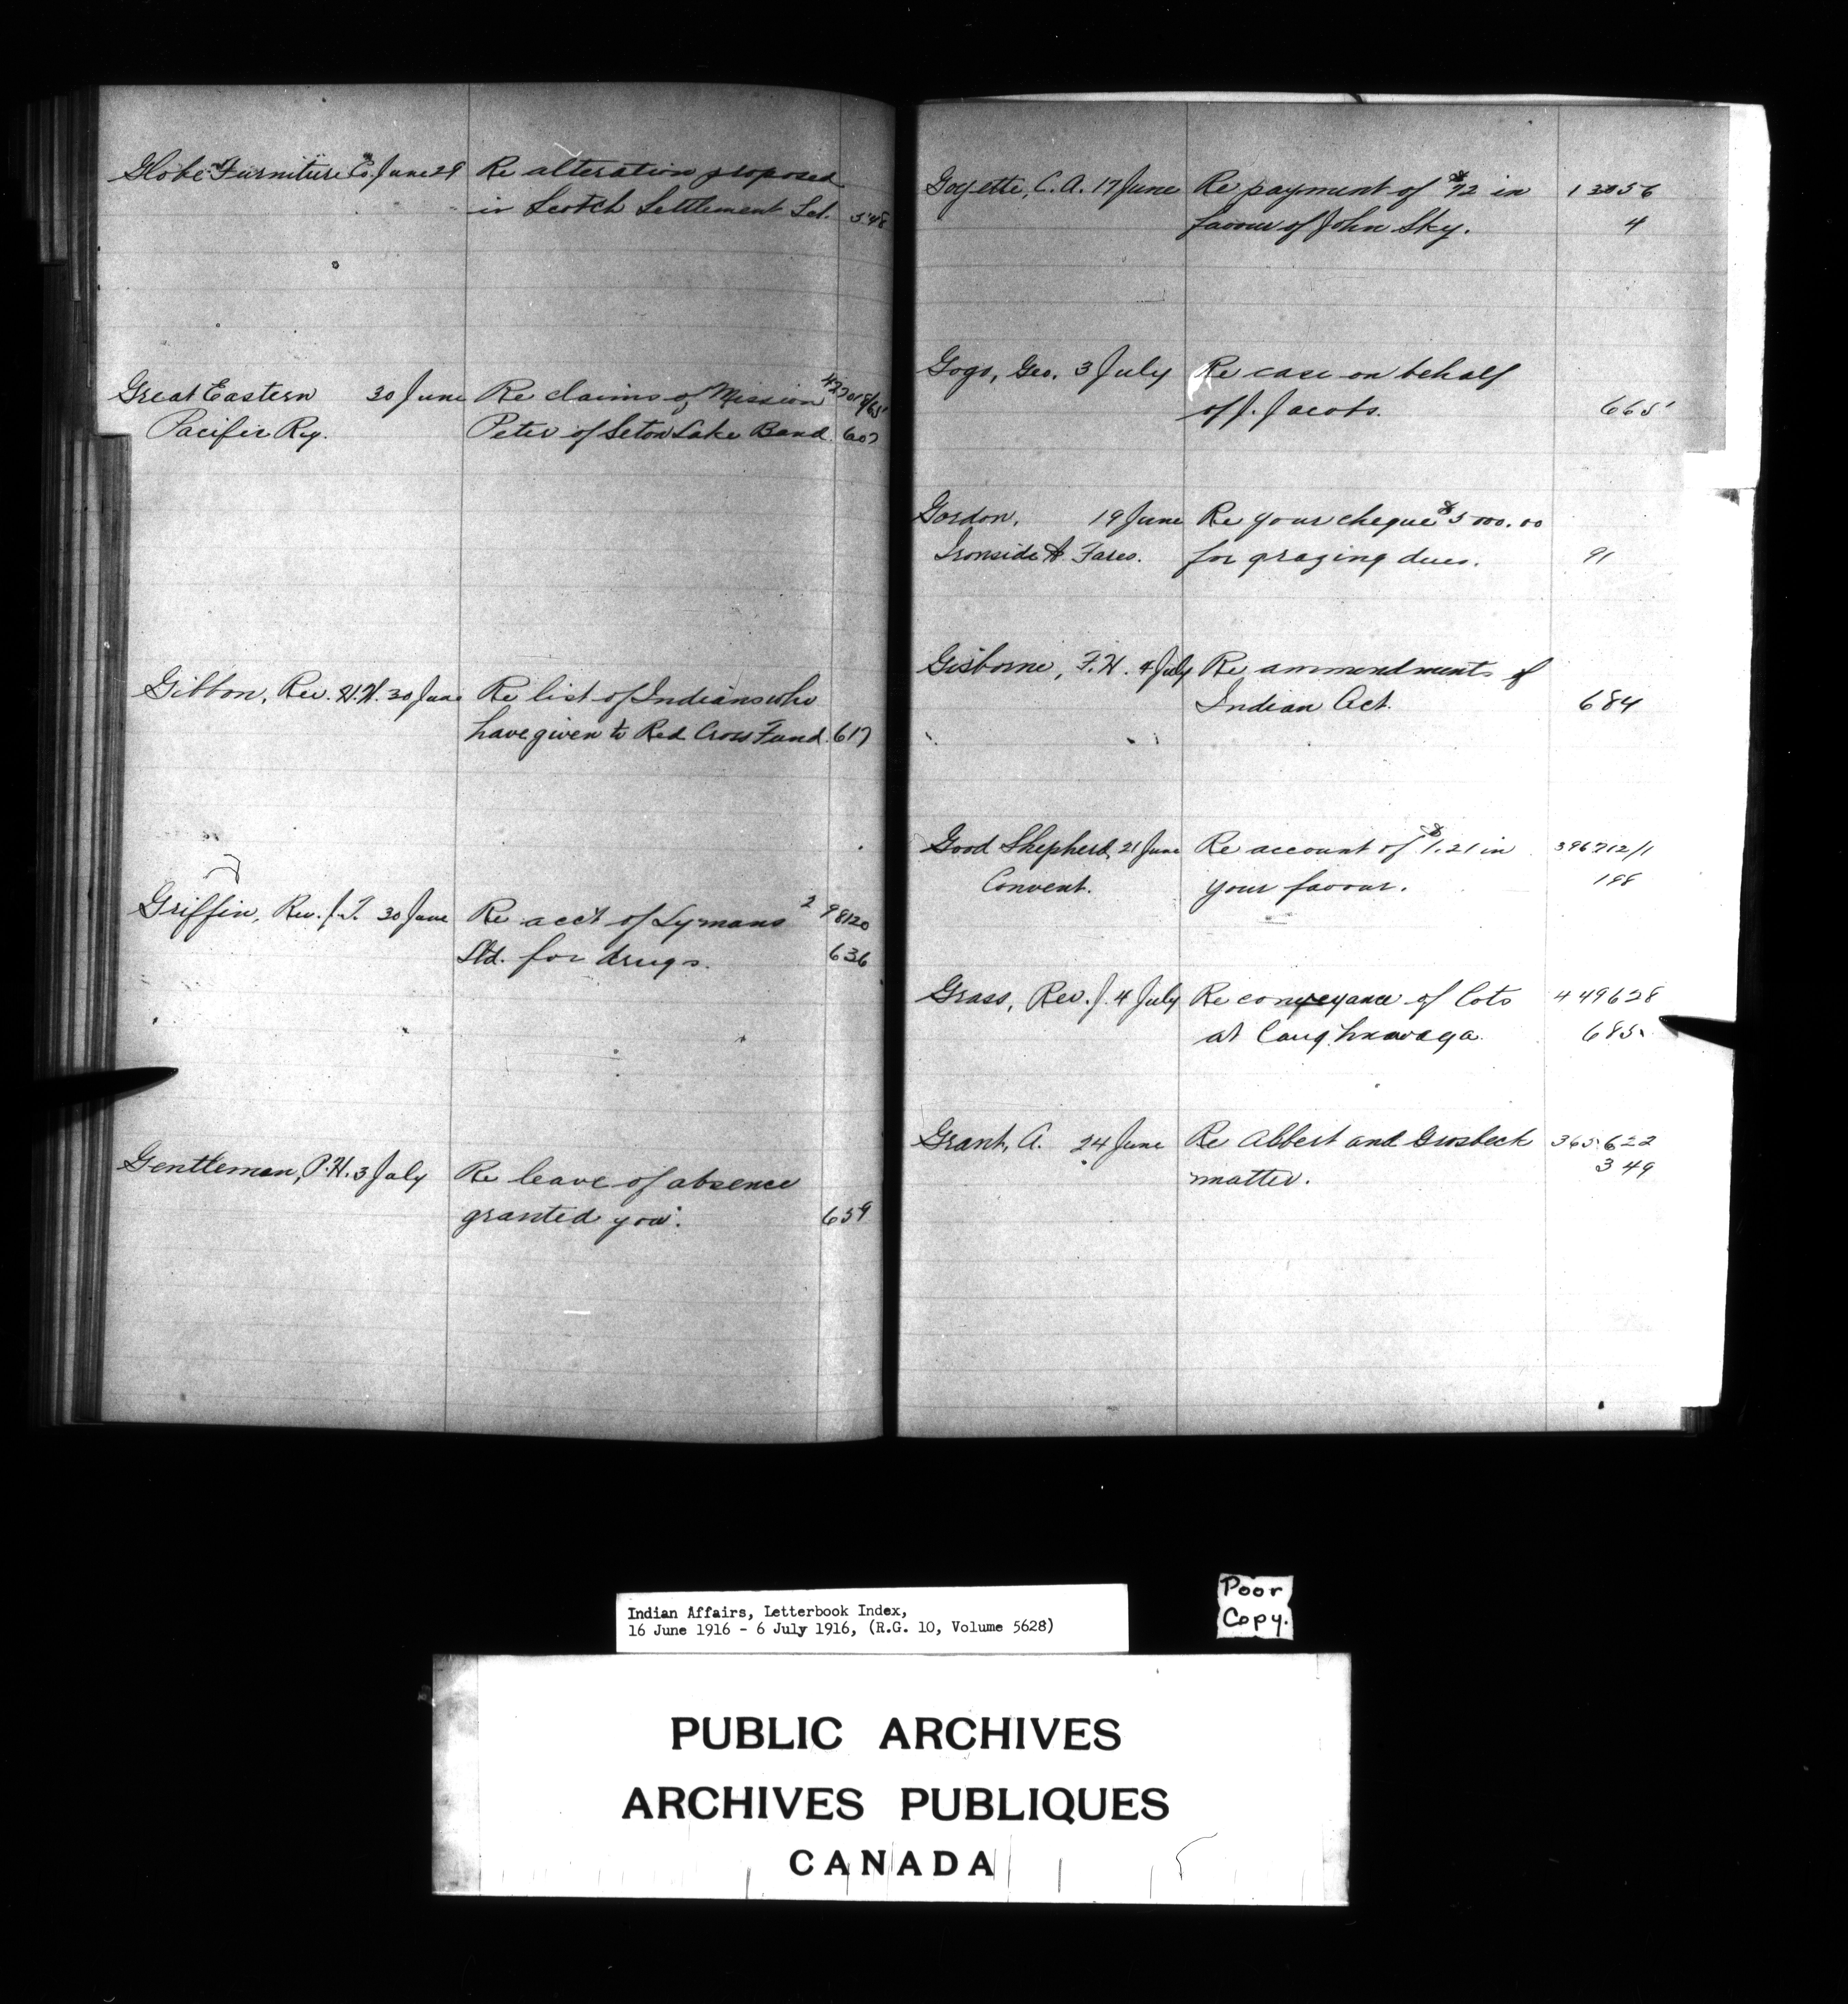 Globe Furniture Co. June 29 Re alteration proposed
in Scotch Settlement Scl. 548
Great Eastern 30 June Re claims of Mission 427018/65
Pacific Ry. Peter of Seton Lake Band. 607
Gibbon, Rev. H.H. 30 June Re list of Indians who
have given to Red Cross Fund. 617
Griffin, Rev. J.T. 30 June Re acc't of Lymans 298120
Ltd. for drugs. 636
Gentleman, P.H. 3 July Re leave of absence
granted you. 659
Goyette, C.A. 17 June Re payment of $72 in 13056
favour of John Sky. 4
Gogo, Geo. 3 July Re case on behalf
of J. Jacobs. 665
Gordon, 19 June Re your cheque $5000.00
Ironside & Fares. for grazing dues. 91
Gisborne, F.H. 4 July Re ammendments of
Indian Act. 684
Good Shepherd, 21 June Re account of $1.21 in 396712/1
Convent. your favour. 188
Grass, Rev. J. 4 July Re conveyance of lots 449628
at Caughnawaga. 685
Grant, A. 24 June Re Abbert and Grosbeck 365622
matter. 349
Indian Affairs, Letterbook Index,
16 June 1916 - 6 July 1916, (R.G. 10, Volume 5628)
Poor
Copy.
PUBLIC ARCHIVES
ARCHIVES PUBLIQUES
CANADA